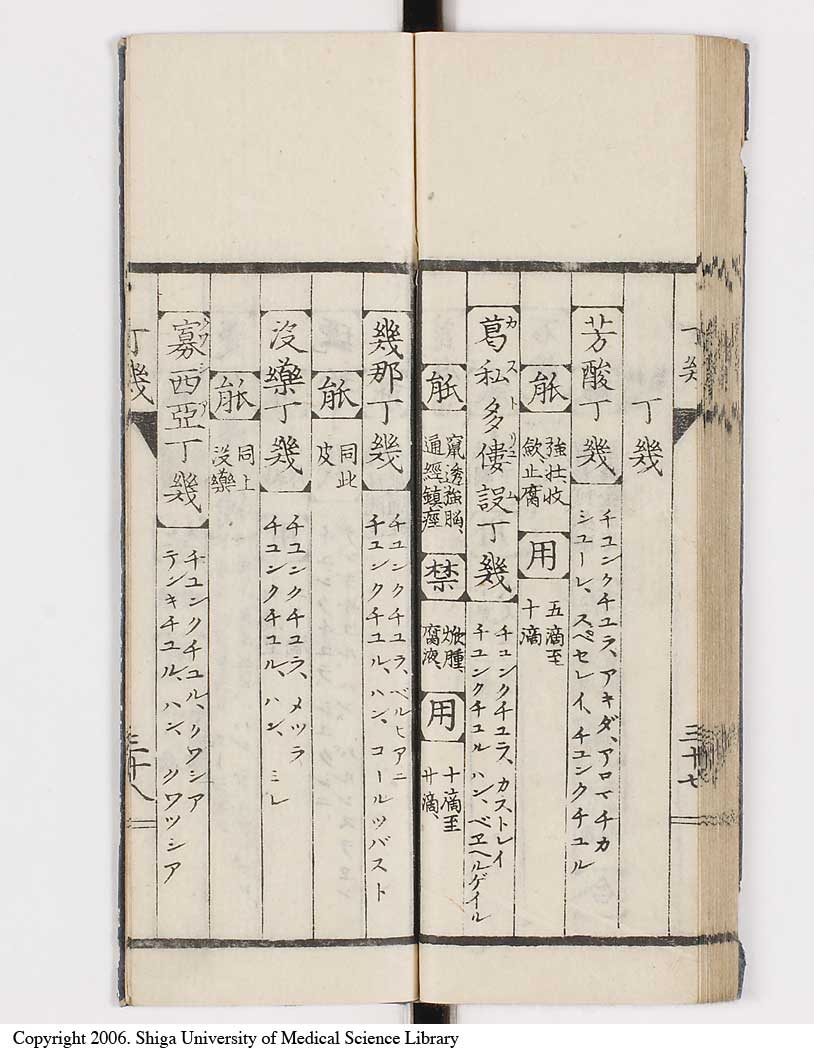 丁幾
芳酸丁幾
チユンクチユラ、アキダ、アロマチカ
シユーレ、スペセレイ、チユンクチユル
能
強壮收
歛止腐
用
五滴至
十滴
葛私多僂設丁幾
カストリユム
チユンクチユラ、カストレイ
チユンクチユル ハン、ベヱヘルゲイル
能
竄透強脳、
通經鎮痙
禁
焮腫、
腐液、
用
十滴至
廿滴、
三十七
幾那丁幾
チユンクチユラ、ベルヒアニ
チユンクチユル、ハン、コールツバスト
能
同此
皮
没藥丁幾
チユンクチユラ、メツラ
チユンクチユル、ハン、ミレ
能
同上
没藥
寡西亞丁幾
クワシア
チユンクチユル、クワシア
テンキチユル、ハン、クワツシア
丁幾
三十八
Copyright 2006. Shiga University of Medical Science Library